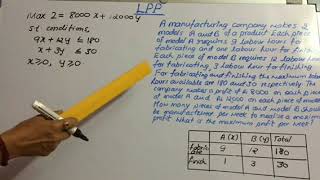 LPP
Max Z = 8000x + 12000y
st conditions
9x + 12y ≤ 180
x + 3y ≤ 30
x ≥ 0, y ≥ 0
A manufacturing company makes 2
models A and B of a product. Each piece of
model A requires 9 labour hours for
fabricating and one labour hour for finish
Each piece of model B requires 12 labour hours
for fabricating, 3 labour hour for finishing
For fabricating and finishing the maximum labour
hours available are 180 and 30 respectively. The
company makes a profit of Rs 8000 on each piece
of model A and Rs 12000 on each piece of model
How many pieces of model A and model B should
be manufactured per week to realise a maximum
profit. What is the maximum profit per week?
A (x) B (y) Total
Fabric ate 9 12 180
Finish 1 3 30